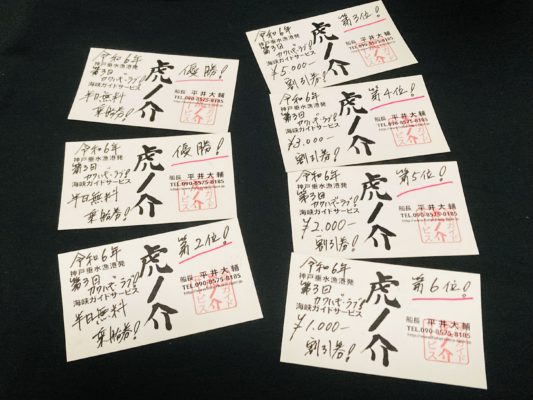 令和6年
優勝!
神戸垂水漁港発
第3回
カワハギーラブ!
海峡ガイドサービス
半日無料
乗船券!
虎ノ介
船長 平井大輔
TEL.090-8575-8185
ガイド
サービス
令和6年
優勝!
神戸垂水漁港発
第3回
海峡ガイドサービス
半日無料
乗船券!
虎ノ介
船長 平井大輔
TEL.090-8575-8185
令和6年
第2位!
神戸垂水漁港発
第3回
海峡ガイドサービス
半日無料
乗船券!
虎ノ介
船長 平井大輔
TEL.090-8575-8185
令和6年
第3位!
神戸垂水漁港発
第3回
海峡ガイドサービス
¥5,000-
割引券!
虎ノ介
船長 平井大輔
TEL.090-8575-8185
令和6年
第4位!
神戸垂水漁港発
第3回
海峡ガイドサービス
¥3,000-
割引券!
虎ノ介
船長 平井大輔
TEL.090-8575-8185
令和6年
第5位!
神戸垂水漁港発
第3回
海峡ガイドサービス
¥2,000-
割引券!
虎ノ介
船長 平井大輔
TEL.090-8575-8185
令和6年
第6位!
神戸垂水漁港発
第3回
海峡ガイドサービス
¥1,000-
割引券!
虎ノ介
船長 平井大輔
TEL.090-8575-8185